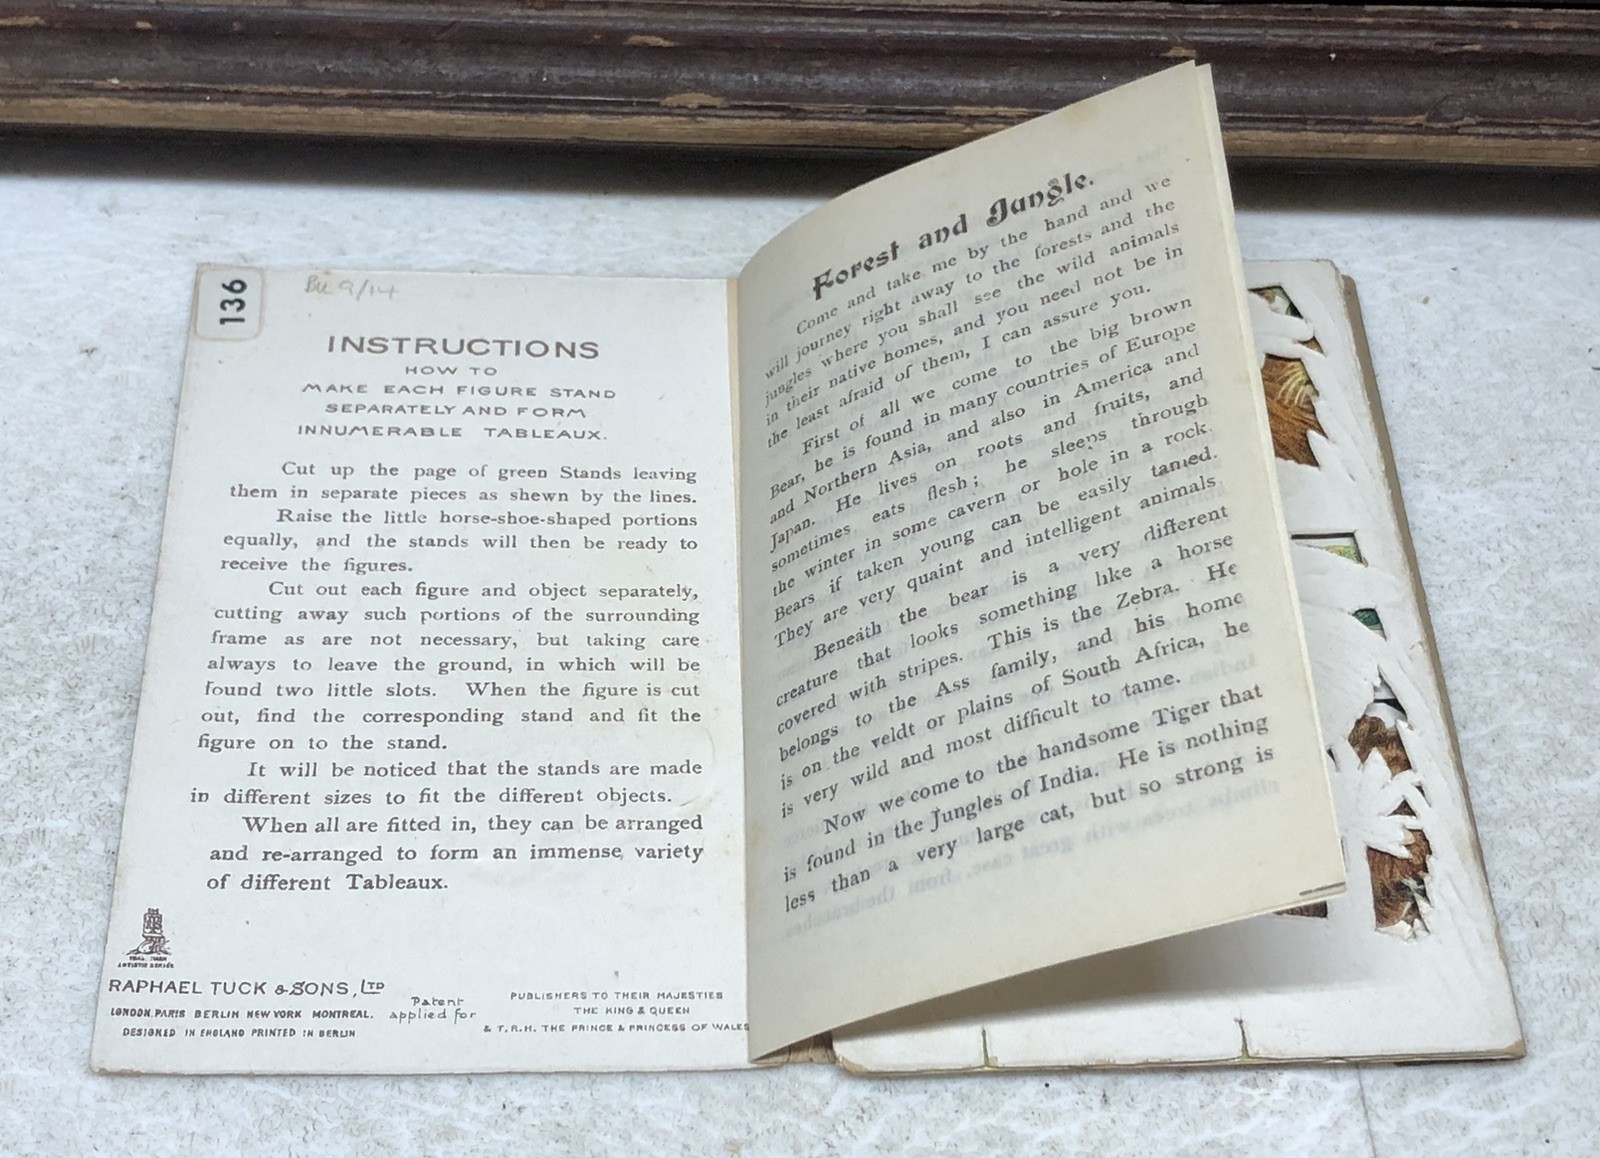 136
INSTRUCTIONS
HOW TO
MAKE EACH FIGURE STAND
SEPARATELY AND FORM
INNUMERABLE TABLEAUX.
Cut up the page of green Stands leaving
them in separate pieces as shewn by the lines.
Raise the little horse-shoe-shaped portions
equally, and the stands will then be ready to
receive the figures.
Cut out each figure and object separately,
cutting away such portions of the surrounding
frame as are not necessary, but taking care
always to leave the ground, in which will be
found two little slots. When the figure is cut
out, find the corresponding stand and fit the
figure on to the stand.
It will be noticed that the stands are made
in different sizes to fit the different objects.
When all are fitted in, they can be arranged
and re-arranged to form an immense variety
of different Tableaux.
RAPHAEL TUCK & SONS, LTD
LONDON. PARIS BERLIN NEW YORK MONTREAL.
DESIGNED IN ENGLAND PRINTED IN BERLIN
Patent
applied for
PUBLISHERS TO THEIR MAJESTIES
THE KING & QUEEN
& T.R.H. THE PRINCE & PRINCESS OF WALES
Forest and Jungle.
Come and take me by the hand and we
will journey right away to the forests and the
jungles where you shall see the wild animals
in their native homes, and you need not be in
the least afraid of them, I can assure you.
First of all we come to the big brown
Bear, he is found in many countries of Europe
and Northern Asia, and also in America and
Japan. He lives on roots and fruits, and
sometimes eats flesh; he sleeps through
the winter in some cavern or hole in a rock.
Bears if taken young can be easily tamed.
They are very quaint and intelligent animals
Beneath the bear is a very different
creature that looks something like a horse
covered with stripes. This is the Zebra. He
belongs to the Ass family, and his home
is on the veldt or plains of South Africa, he
is very wild and most difficult to tame.
Now we come to the handsome Tiger that
is found in the Jungles of India. He is nothing
less than a very large cat, but so strong is